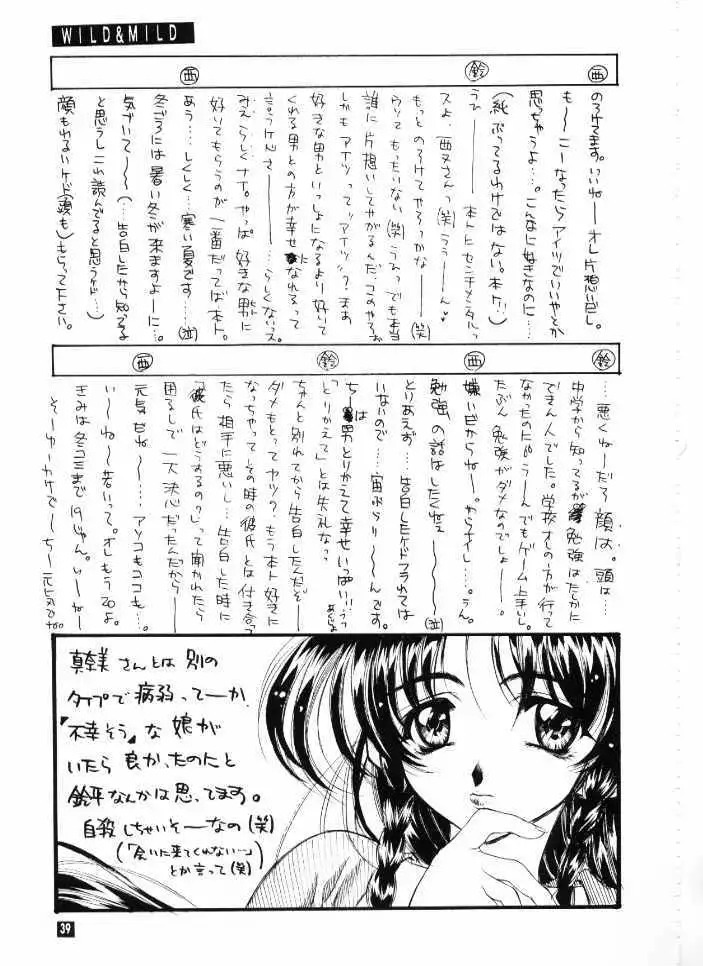 WILD&MILD
西
のろけてます。いいねーオレ片想いだし。
も〜こーなったらアイツでいいやとか
思っちゃうよ…。こんなに好きなのに…
鈴
(純ぶってるわけではない。本ケ!!)
うひ───本トにセンチメンタルっ
スよ、西又さんっ(笑)ううーん♥
もっとのろけてやろっかな──(笑)
ウソでもったいない(笑)うえっでも本当
誰に片想いしてやがるんだ、このやろお
しかもアイツってッアイツ?まあ
好きな男といっしょになるより好いて
くれる男との方が幸せになれるって
言うけどさ───…らしくないっス。
みえらしくナイ。やっぱ好きな男に
好いてもらうのが一番だってば本ト。
西
あう…しくしく…寒い夏です…(泣)
冬ごろには暑い冬が来ますよーに…。
気づいて〜〜(…告白したから知ってる
と思うしこれ読んでると思うケド…)
顔もわるいケド(頭も)もらって下さい。
鈴
…悪くねーだろ顔は。頭は…
中学から知ってるが勉強はたしかに
できん人でした。学校オレの方が行って
なかったのに!?うーんでもゲーム上手いし。
たぶん勉強がダメなのでしょー。
西
嫌いだからねー。やらナイし…。うん。
勉強の話はしたくねェ〜〜〜(泣)
とりあえず…告白したケドフラれては
いないので…宙ぶらり〜〜んです。
鈴
ちーは男とりかえて幸せいっぱい!?
「とりかえて」とは失礼な?
ちゃんと別れてから告白したんだぞー
ダメもとってヤツ?もう本ト好きに
なっちゃってーその時の彼氏とは付き合って
たら相手に悪いし…告白した時に
「彼氏はどうするの?」って聞かれたら
困るしで一大決心だったんだから──
西
元気だね〜…アソコもココも…。
い〜ね〜若いって。オレもう20よ。
きみは冬コミまで19じゃん。いーねー
そーゆーわけでーちー元気でね
真奈美さんとは別の
タイプで病弱ってーか
「不幸そう」な娘が
いたら良かったのにと
鈴平なんかは思ってます。
自殺しちゃいそーなの(笑)
(「会いに来てくれない…」
とか言って(笑)
39